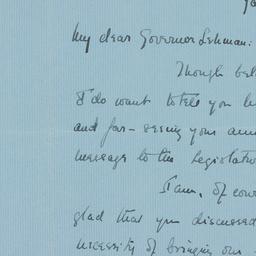 My dear Governor Lehman:
Though bel
I do want to tell you h
and far-seeing your ann
message to the Legislatu
I am, of cou
glad that you discussed
necessity of bringing our